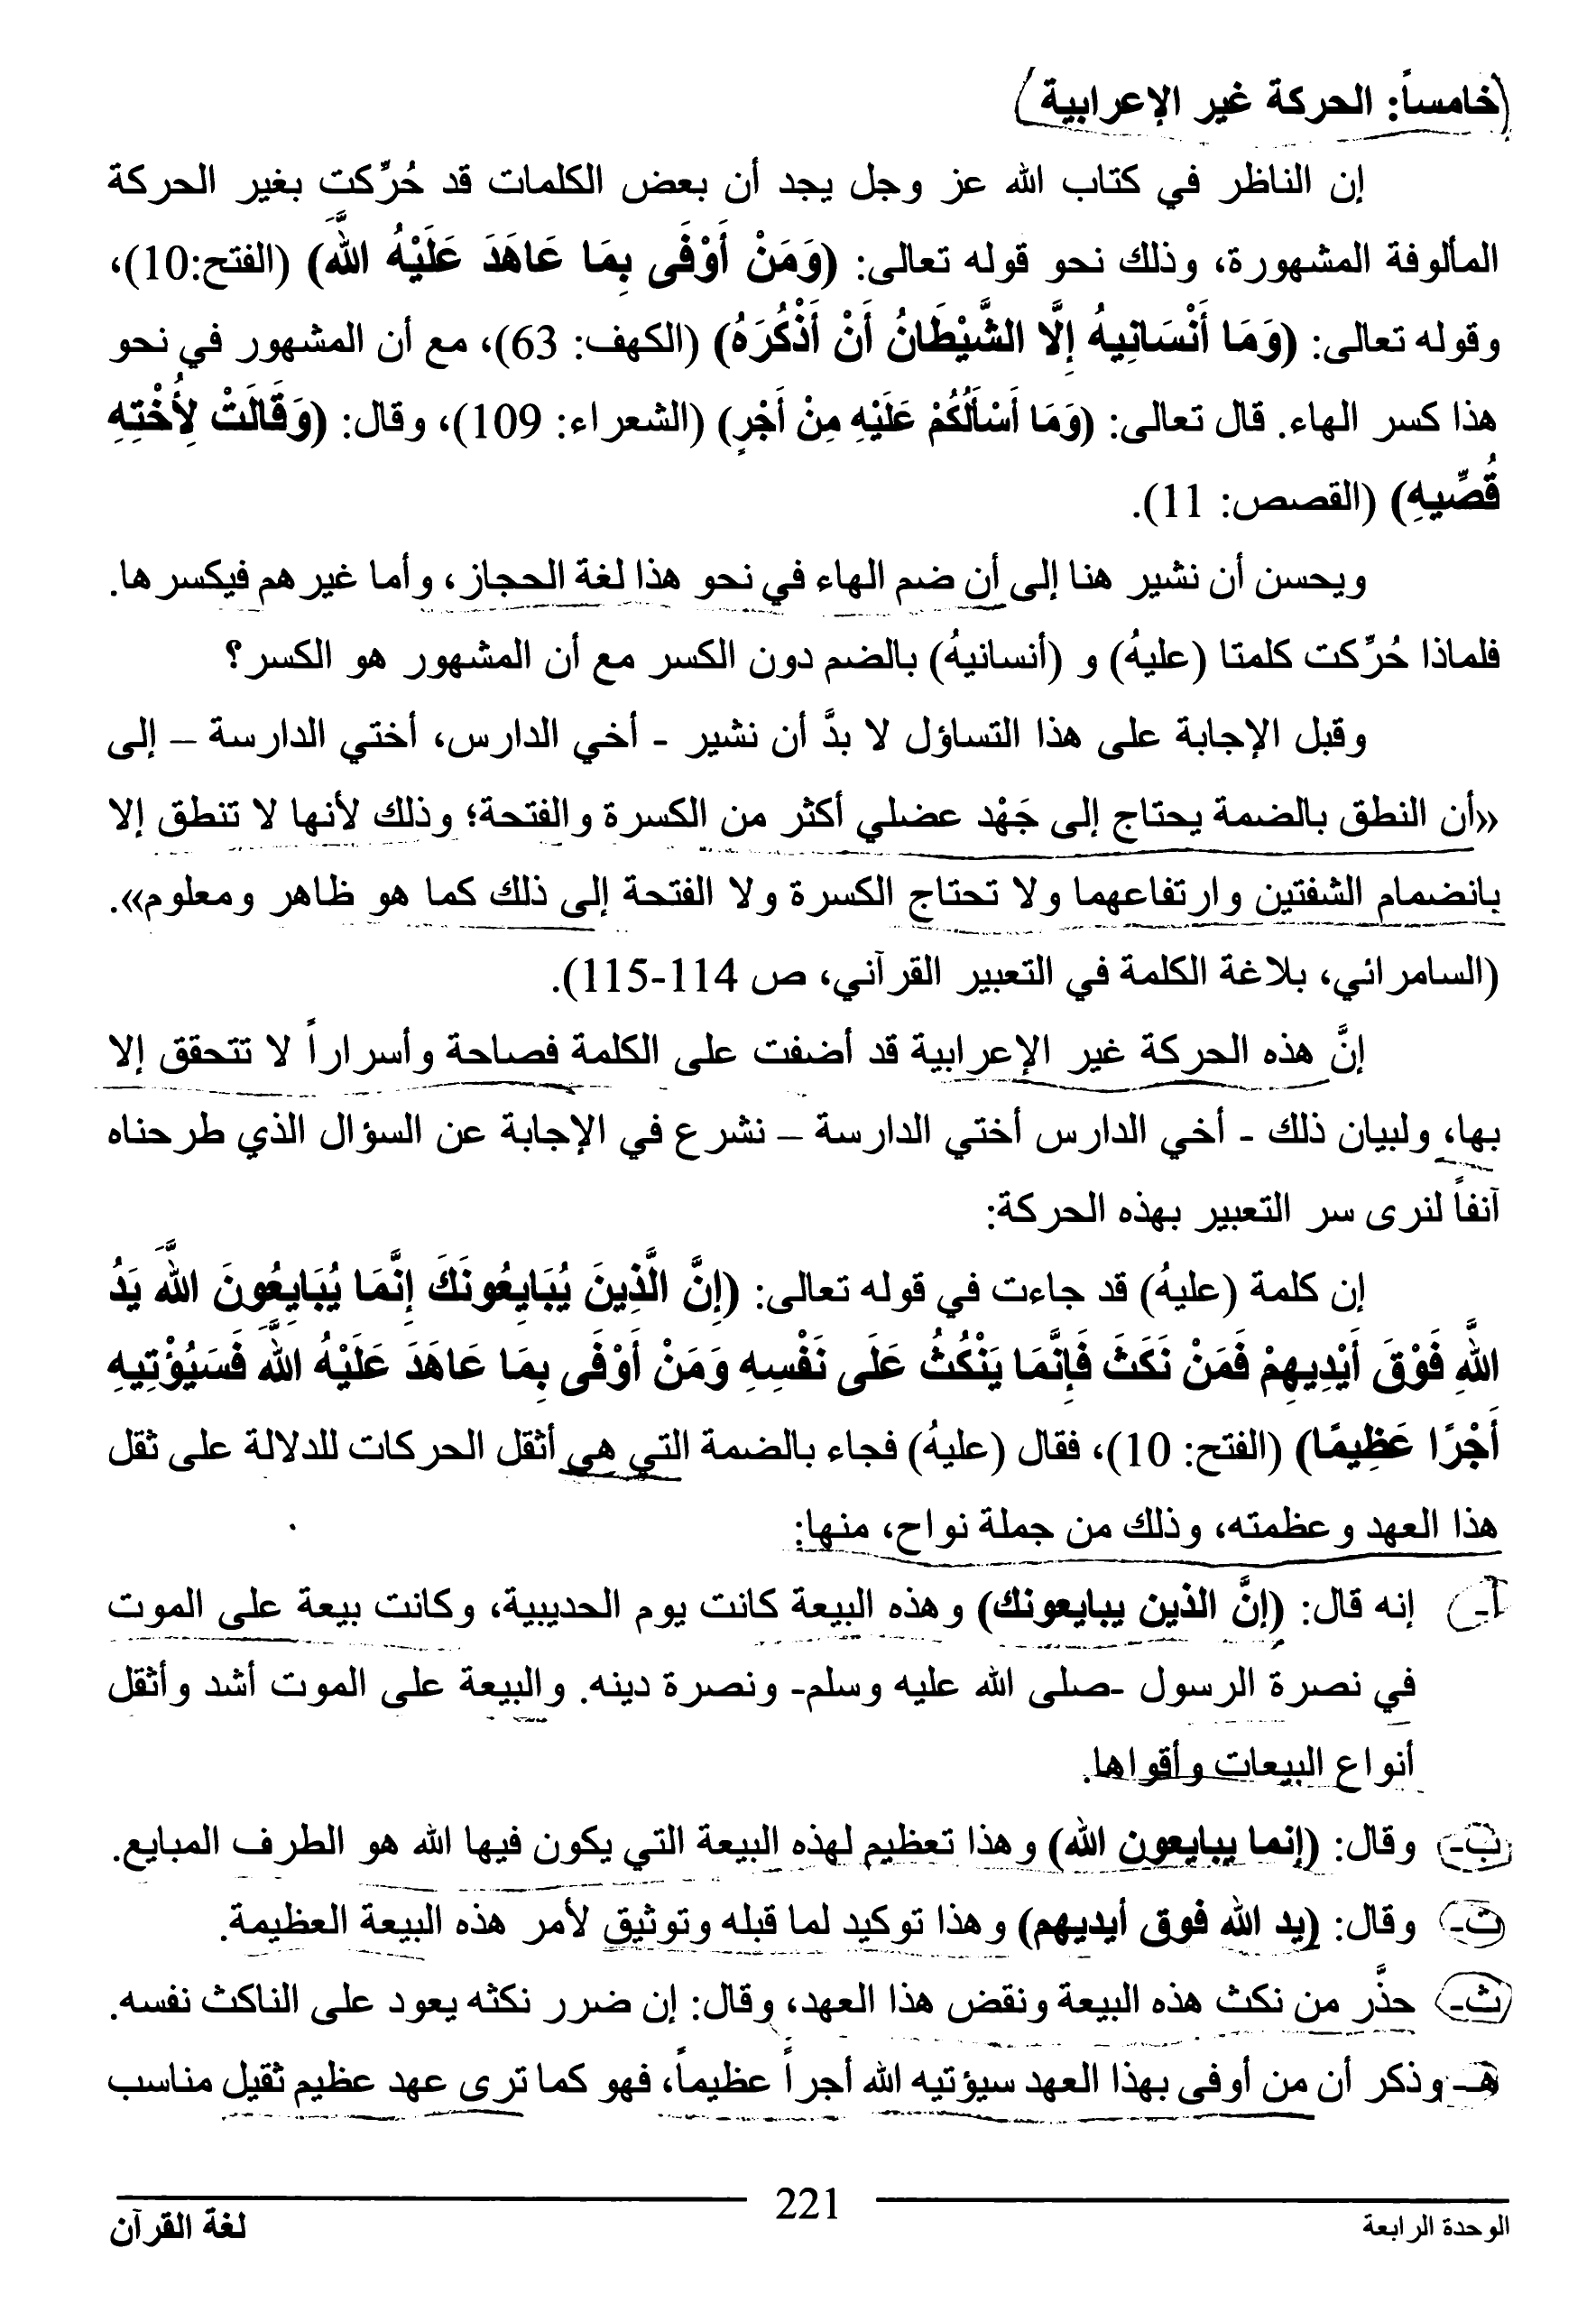 (خامساً: الحركة غير الإعرابية)
إن الناظر في كتاب الله عز وجل يجد أن بعض الكلمات قد حُرِّكت بغير الحركة
المألوفة المشهورة، وذلك نحو قوله تعالى: (وَمَنْ أَوْفَى بِمَا عَاهَدَ عَلَيْهُ اللَّهَ) (الفتح:10)،
وقوله تعالى: (وَمَا أَنْسَانِيهُ إِلَّا الشَّيْطَانُ أَنْ أَذْكُرَهُ) (الكهف: 63)، مع أن المشهور في نحو
هذا كسر الهاء. قال تعالى: (وَمَا أَسْأَلُكُمْ عَلَيْهِ مِنْ أَجْرٍ) (الشعراء: 109)، وقال: (وَقَالَتْ لِأُخْتِهِ
قُصِّيهِ) (القصص: 11).
ويحسن أن نشير هنا إلى أن ضم الهاء في نحو هذا لغة الحجاز، وأما غيرهم فيكسرها.
فلماذا حُرِّكت كلمتا (عليهُ) و (أنسانيهُ) بالضم دون الكسر مع أن المشهور هو الكسر؟
وقبل الإجابة على هذا التساؤل لا بدَّ أن نشير - أخي الدارس، أختي الدارسة – إلى
«أن النطق بالضمة يحتاج إلى جَهْد عضلي أكثر من الكسرة والفتحة؛ وذلك لأنها لا تنطق إلا
بانضمام الشفتين وارتفاعهما ولا تحتاج الكسرة ولا الفتحة إلى ذلك كما هو ظاهر ومعلوم».
(السامرائي، بلاغة الكلمة في التعبير القرآني، ص 114-115).
إنَّ هذه الحركة غير الإعرابية قد أضفت على الكلمة فصاحة وأسراراً لا تتحقق إلا
بها، ولبيان ذلك - أخي الدارس أختي الدارسة – نشرع في الإجابة عن السؤال الذي طرحناه
آنفاً لنرى سر التعبير بهذه الحركة:
إن كلمة (عليهُ) قد جاءت في قوله تعالى: (إِنَّ الَّذِينَ يُبَايِعُونَكَ إِنَّمَا يُبَايِعُونَ اللَّهَ يَدُ
اللَّهِ فَوْقَ أَيْدِيهِمْ فَمَنْ نَكَثَ فَإِنَّمَا يَنْكُثُ عَلَى نَفْسِهِ وَمَنْ أَوْفَى بِمَا عَاهَدَ عَلَيْهُ اللَّهَ فَسَيُؤْتِيهِ
أَجْرًا عَظِيمًا) (الفتح: 10)، فقال (عليهُ) فجاء بالضمة التي هي أثقل الحركات للدلالة على ثقل
هذا العهد وعظمته، وذلك من جملة نواح، منها:
أ- إنه قال: (إنَّ الذين يبايعونك) وهذه البيعة كانت يوم الحديبية، وكانت بيعة على الموت
في نصرة الرسول -صلى الله عليه وسلم- ونصرة دينه. والبيعة على الموت أشد وأثقل
أنواع البيعات وأقواها.
ب- وقال: (إنما يبايعون الله) وهذا تعظيم لهذه البيعة التي يكون فيها الله هو الطرف المبايع.
ت- وقال: (يد الله فوق أيديهم) وهذا توكيد لما قبله وتوثيق لأمر هذه البيعة العظيمة.
ث- حذَّر من نكث هذه البيعة ونقض هذا العهد، وقال: إن ضرر نكثه يعود على الناكث نفسه.
هـ- وذكر أن من أوفى بهذا العهد سيؤتيه الله أجراً عظيماً، فهو كما ترى عهد عظيم ثقيل مناسب
الوحدة الرابعة 221 لغة القرآن